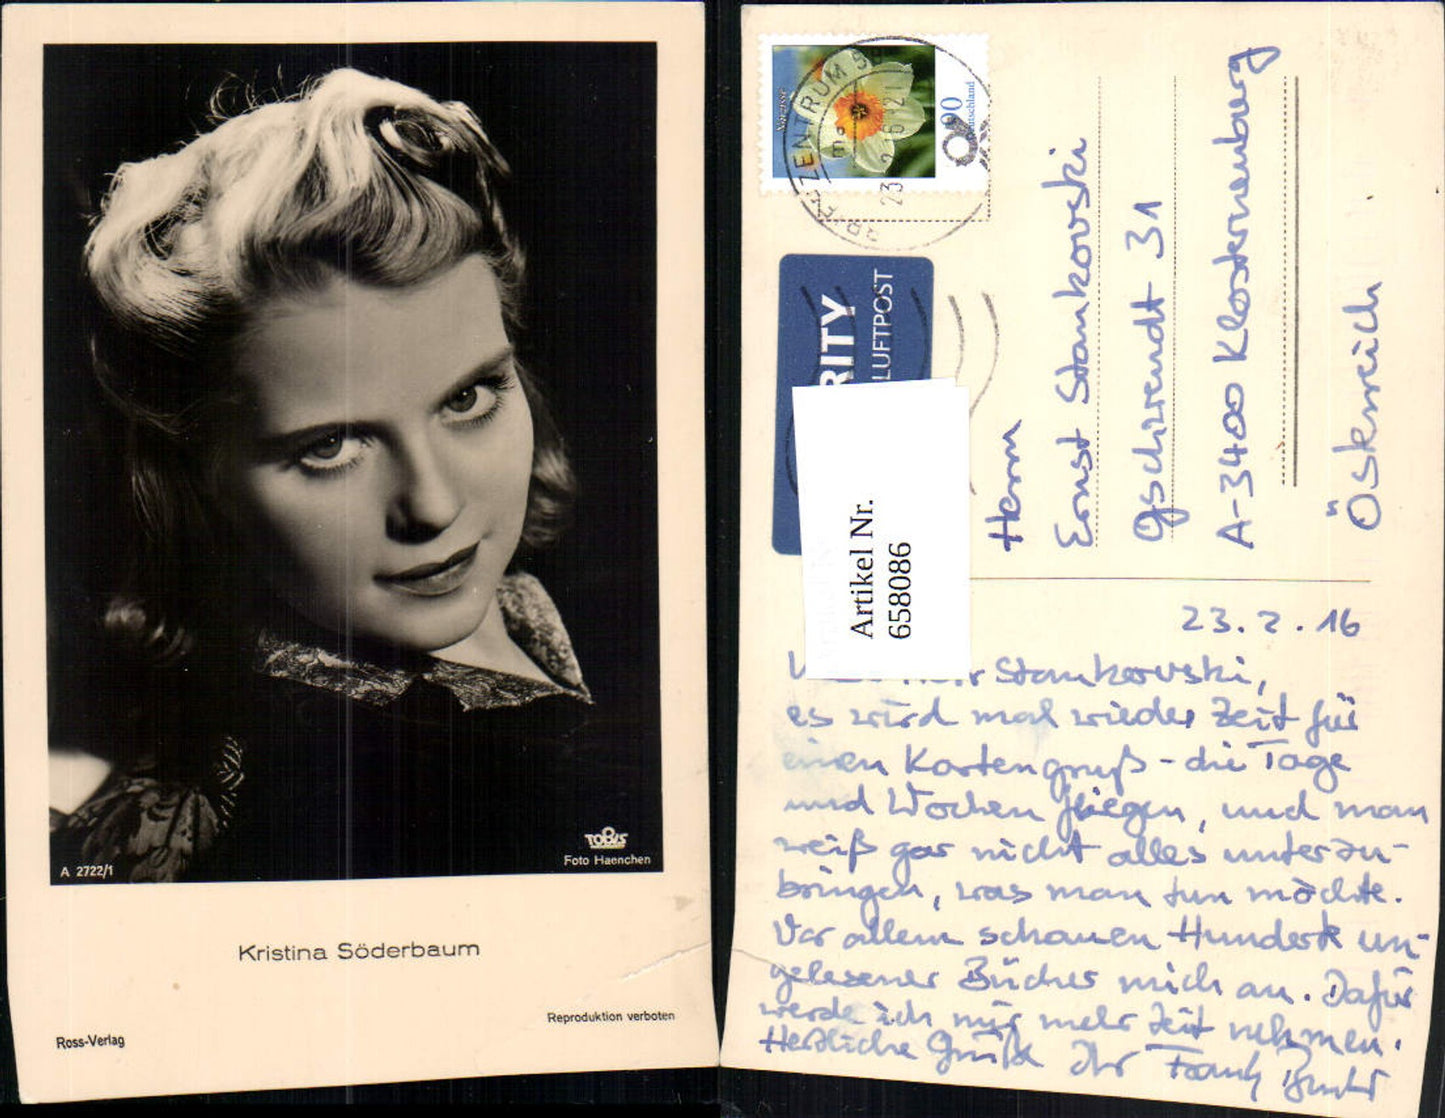 A 2722/1
TOBIS
Foto Haenchen
Kristina Söderbaum
Reproduktion verboten
Ross-Verlag
Narzisse
90
Deutschland
BRIEFZENTRUM
23.2.16-21
RITY
LUFTPOST
Artikel Nr.
658086
Herrn
Ernst Stankovski
Gschwendt 31
A-3400 Klosterneuburg
Österreich
23.2.16
Stankovski,
es wird mal wieder Zeit für
einen Kartengruß - die Tage
und Wochen fliegen, und man
weiß gar nicht alles unterzu-
bringen, was man tun möchte.
Vor allem schauen Hunderte un-
gelesener Bücher mich an. Dafür
werde ich mir mehr Zeit nehmen.
Herzliche Grüße Ihr Frank